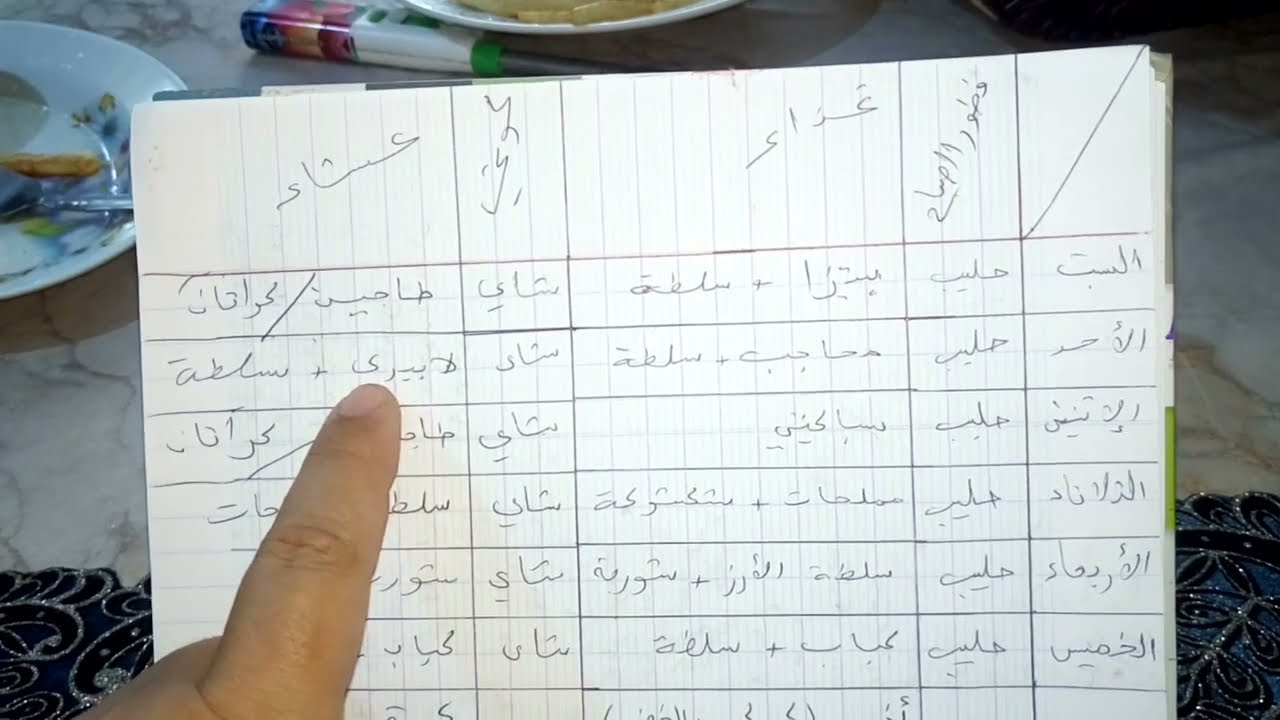 فطور الصباح غداء لمجة عشاء
السبت حليب بيتزا + سلطة شاي طاجين / كراتان
الأحد حليب محاجب + سلطة شاي لابيري + سلطة
الإثنين حليب سباكيتي شاي كراتان
الثلاثاء حليب مملحات + شكشوكة شاي
الأربعاء حليب سلطة الأرز + شوربة شاي
الخميس حليب كباب + سلطة شاي كباب